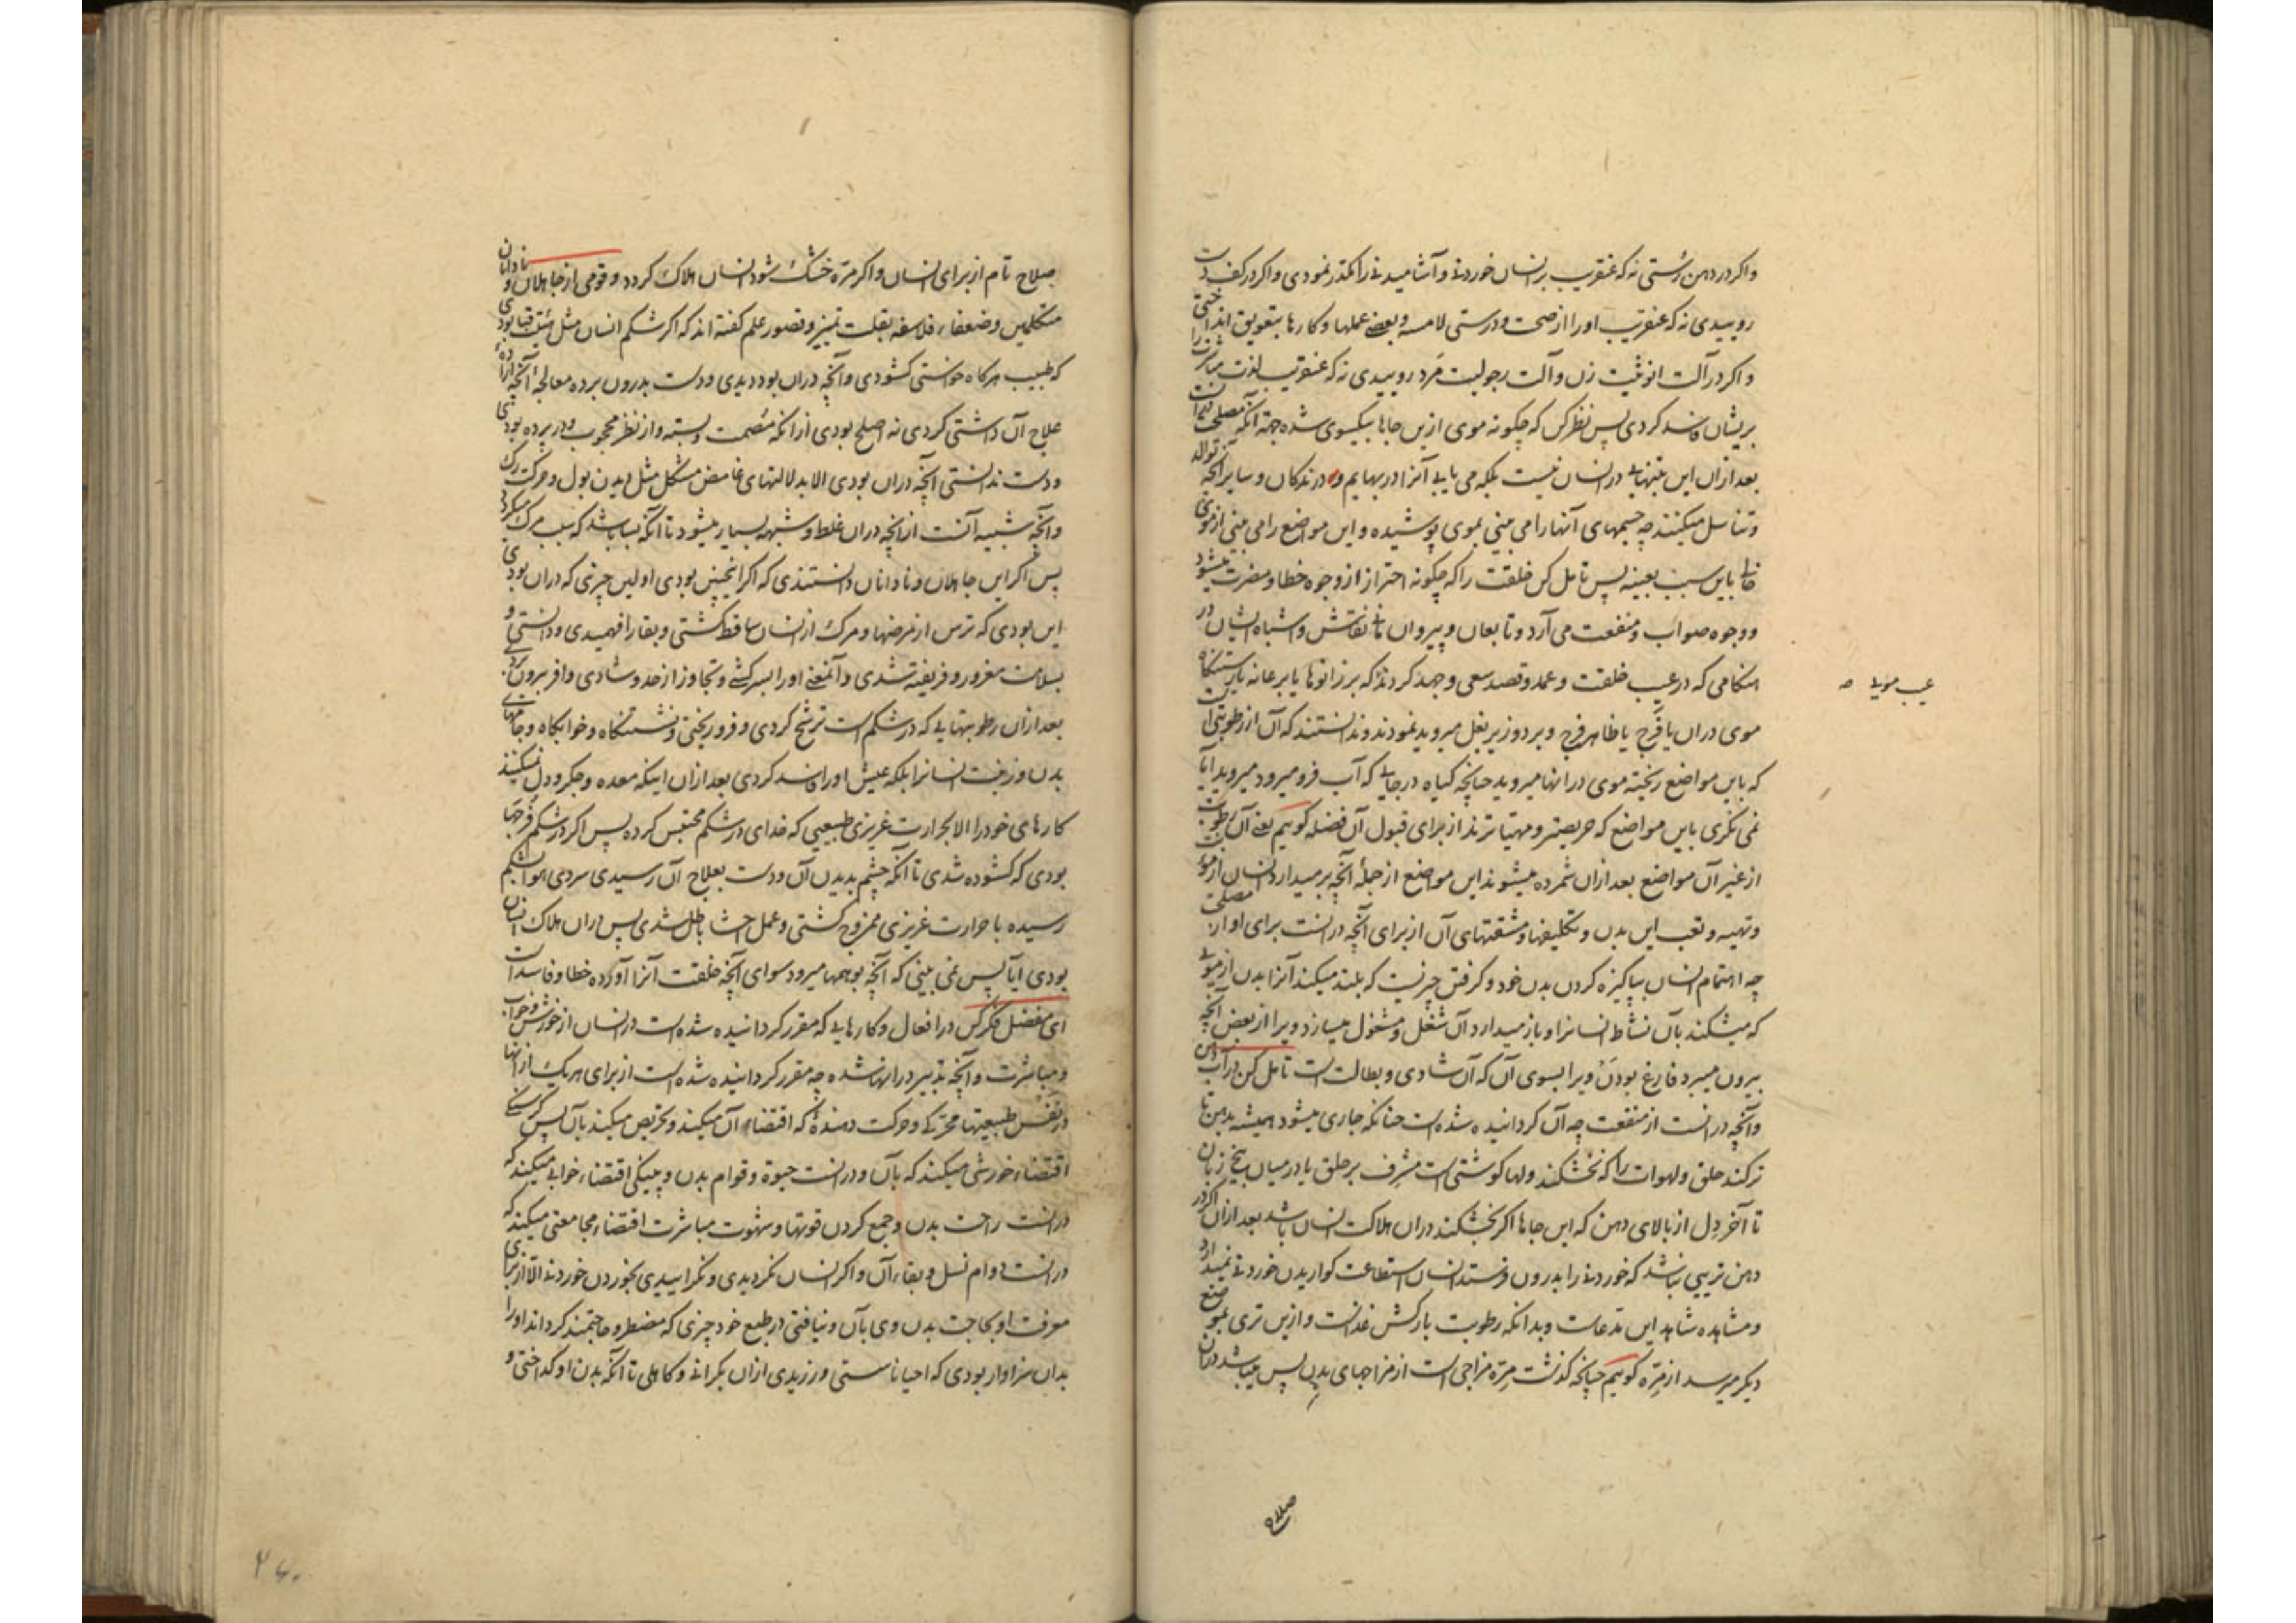 واکر در دهن رستی نه که عنقریب بر انسان خوردنی و آشامیدنی را مکدر نمودی واکر در کف دست
روییدی نه که عنقریب اورا از صحت و درستی لامسه و بعضی عملها و کارها بتعویق انداختی
واکر در آلت انوثیت زن و آلت رجولیت مرد روییدی نه که عنقریب لذت مباشرت را
بریشان فاسد کردی پس نظر کن که چکونه موی ازین جاها بیکسوی شده جهة آنکه مصلحت
بعد ازان این بتنهایی در انسان نیست بلکه می یابی آنرا در بهایم و درندکان و سایر آنچه توالد
و تناسل میکنند چه جسمهای آنها را می بینی بموی پوشیده و این مواضع را می بینی از موی
خالی باین سبب بعینه پس تامل کن خلقت را که چکونه احتراز از وجوه خطا و مضرت میشود
و وجوه صواب و منفعت می آرد و تابعان و پیروان مانی نقاش و اشباه ایشان در
هنکامی که در عیب خلقت و عمد و قصد سعی و جهد کردند که بر زانوها یا بر عانه یا رستنکاه
عیب مویی صه
موی دران یا فرج یا ظاهر فرج و بر دو زیر بغل میروید نمودند و ندانستند که آن از رطوبتی است
که باین مواضع ریخته موی در انها میروید چنانچه کیاه در جایی که آب فرو میرود میروید ایا
نمی نکری باین مواضع که حریصتر و مهیاترند از برای قبول آن فضله کوییم یعنی آن رطوبت
از غیر آن مواضع بعد ازان شمرده میشوند این مواضع از جمله آنچه بر میدارد انسان از مؤنت
و تهیه و تعب این بدن و تکلیفها و مشقتهای آن از برای آنچه در انست برای او از مصلحت
چه اهتمام انسان بپاکیزه کردن بدن خود و کرفتن چیزیست که بلند میکند آنرا بدن از مویی
که میشکند بآن نشاط انسانرا و باز میدارد آن شغل و مشغول میسازد ویرا از بعض آنچه
بیرون میبرد فارغ بودن ویرا بسوی آن که آن شادی و بطالت است تامل کن در آب دهن
و آنچه در انست از منفعت چه آن کردانیده شده است چنانکه جاری میشود همیشه بدهن تا
تر کند حلق و لهوات را که نخشکند و لها کوشتی است مشرف بر حلق یا در میان بیخ زبان
تا آخر دل از بالای دهن که این جاها اکر بخشکند دران هلاکت انسان باشد بعد ازان اکر در
دهن ترییی نباشد که خوردنی را بدرون فرستد انسان استطاعت کواریدن خوردنی نمیدارد
و مشاهده شاهد این مدعاست و بدانکه رطوبت بارکش غذاست و ازین تری بموضع
دیکر میرسد از مره کوییم چنانچه کذشت مره مزاجی است از مزاجهای بدن پس میباشد دران
صلاح
صلاح تام از برای انسان واکر مره خشک شود انسان هلاک کردد و قومی از جاهلان و نادانان
متکلمین و ضعفاء فلاسفه بقلت تمییز و قصور علم کفته اند که اکر شکم انسان مثل قبا بودی
که طبیب هرکاه خواستی کشودی و آنچه دران بود دیدی و دست بدرون برده معالجهٔ آنچه ارادهٔ
علاج آن داشتی کردی نه اصلح بودی از آنکه مصمت و بسته و از نظر محجوب و در پرده بودی
و دست ندانستی آنچه دران بودی الا بدلالتهای غامض مشکل مثل دیدن بول و حرکت رک
و آنچه شبیه آنست از انچه دران غلط و شبهه بسیار میشود تا آنکه بسا باشد که سبب مرک میکردد
پس اکر این جاهلان و نادانان دانستندی که اکر اینچنین بودی اولین چیزی که دران بودی
این بودی که ترس از مرضها و مرک از انسان ساقط کشتی و بقا را فهمیدی و دانستی و
بسلامت مغرور و فریفته شدی و آنمعنی اورا بسرکشی و تجاوز از حد و شادی وافر بیرون بردی
بعد ازان رطوبتهایی که در شکم است ترشح کردی و فرو ریختی و نشستنکاه و خوابکاه و جامهای
بدن و زینت انسانرا بلکه عیش اورا فاسد کردی بعد ازان اینکه معده و جکر و دل نمیکنند
کارهای خود را الا بحرارت غریزی طبیعیی که خدای در شکم محتبس کرده پس اکر در شکم فرجها
بودی که کشوده شدی تا آنکه چشم بدیدن آن و دست بعلاج آن رسیدی سردی هوا بشکم
رسیده با حرارت غریزی ممزوج کشتی و عمل احشا باطل شدی پس دران هلاک انسان
بودی ایا پس نمی بینی که آنچه بوهمها میرود سوای آنچه خلقت آنرا آورده خطا و فاسد است
ای مفضل فکر کن در افعال و کارهایی که مقرر کردانیده شده است در انسان از خورش و خواب
و مباشرت و آنچه تدبیر در انها شده چه مقرر کردانیده شده است از برای هریک از انها
در نفس طبیعتها محرکی و حرکت دهندهٔ که اقتضاء آن میکند و تحریص میکند بآن پس کرسنکی
اقتضاء خورشی میکند که بآن و در انست حیوة و قوام بدن و پینکی اقتضاء خوابی میکند که
در انست راحت بدن و جمع کردن قوتها و شهوت مباشرت اقتضاء مجامعتی میکند که
در انست دوام نسل و بقاء آن واکر انسان نکردیدی و نکراییدی بخوردن خوردنی الا از برای
معرفت او بحاجت بدن وی بآن و نیافتی در طبع خود چیزی که مضطر و حاجتمند کرداند اورا
بدان سزاوار بودی که احیانا سستی ورزیدی ازان بکرانی و کاهلی تا آنکه بدن او کداختی و
۲۶۰